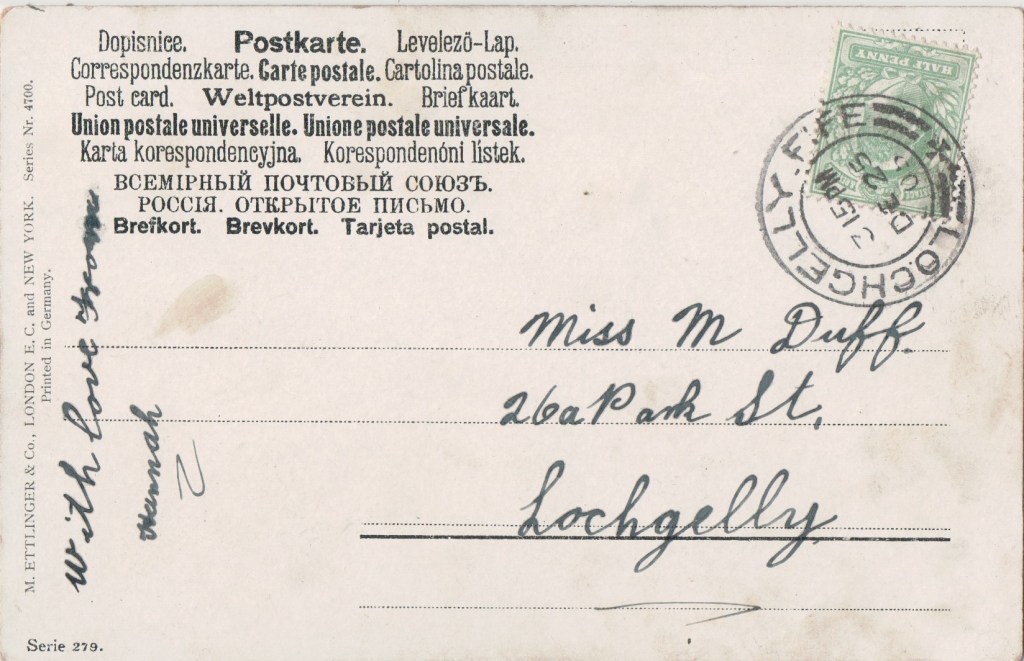 Dopisnice. Postkarte. Levelezö-Lap.
Correspondenzkarte. Carte postale. Cartolina postale.
Post card. Weltpostverein. Briefkaart.
Union postale universelle. Unione postale universale.
Karta korespondencyjna. Korespondenóni lístek.
ВСЕМІРНЫЙ ПОЧТОВЫЙ СОЮЗЪ.
РОССІЯ. ОТКРЫТОЕ ПИСЬМО.
Brefkort. Brevkort. Tarjeta postal.
HALF PENNY
LOCHGELLY-FIFE
3 15 PM
DE 25
Miss M Duff.
26a Park St,
Lochgelly
With love from
Hannah
M. ETTLINGER & Co., LONDON E. C. and NEW YORK. Series Nr. 4700.
Printed in Germany.
Serie 279.